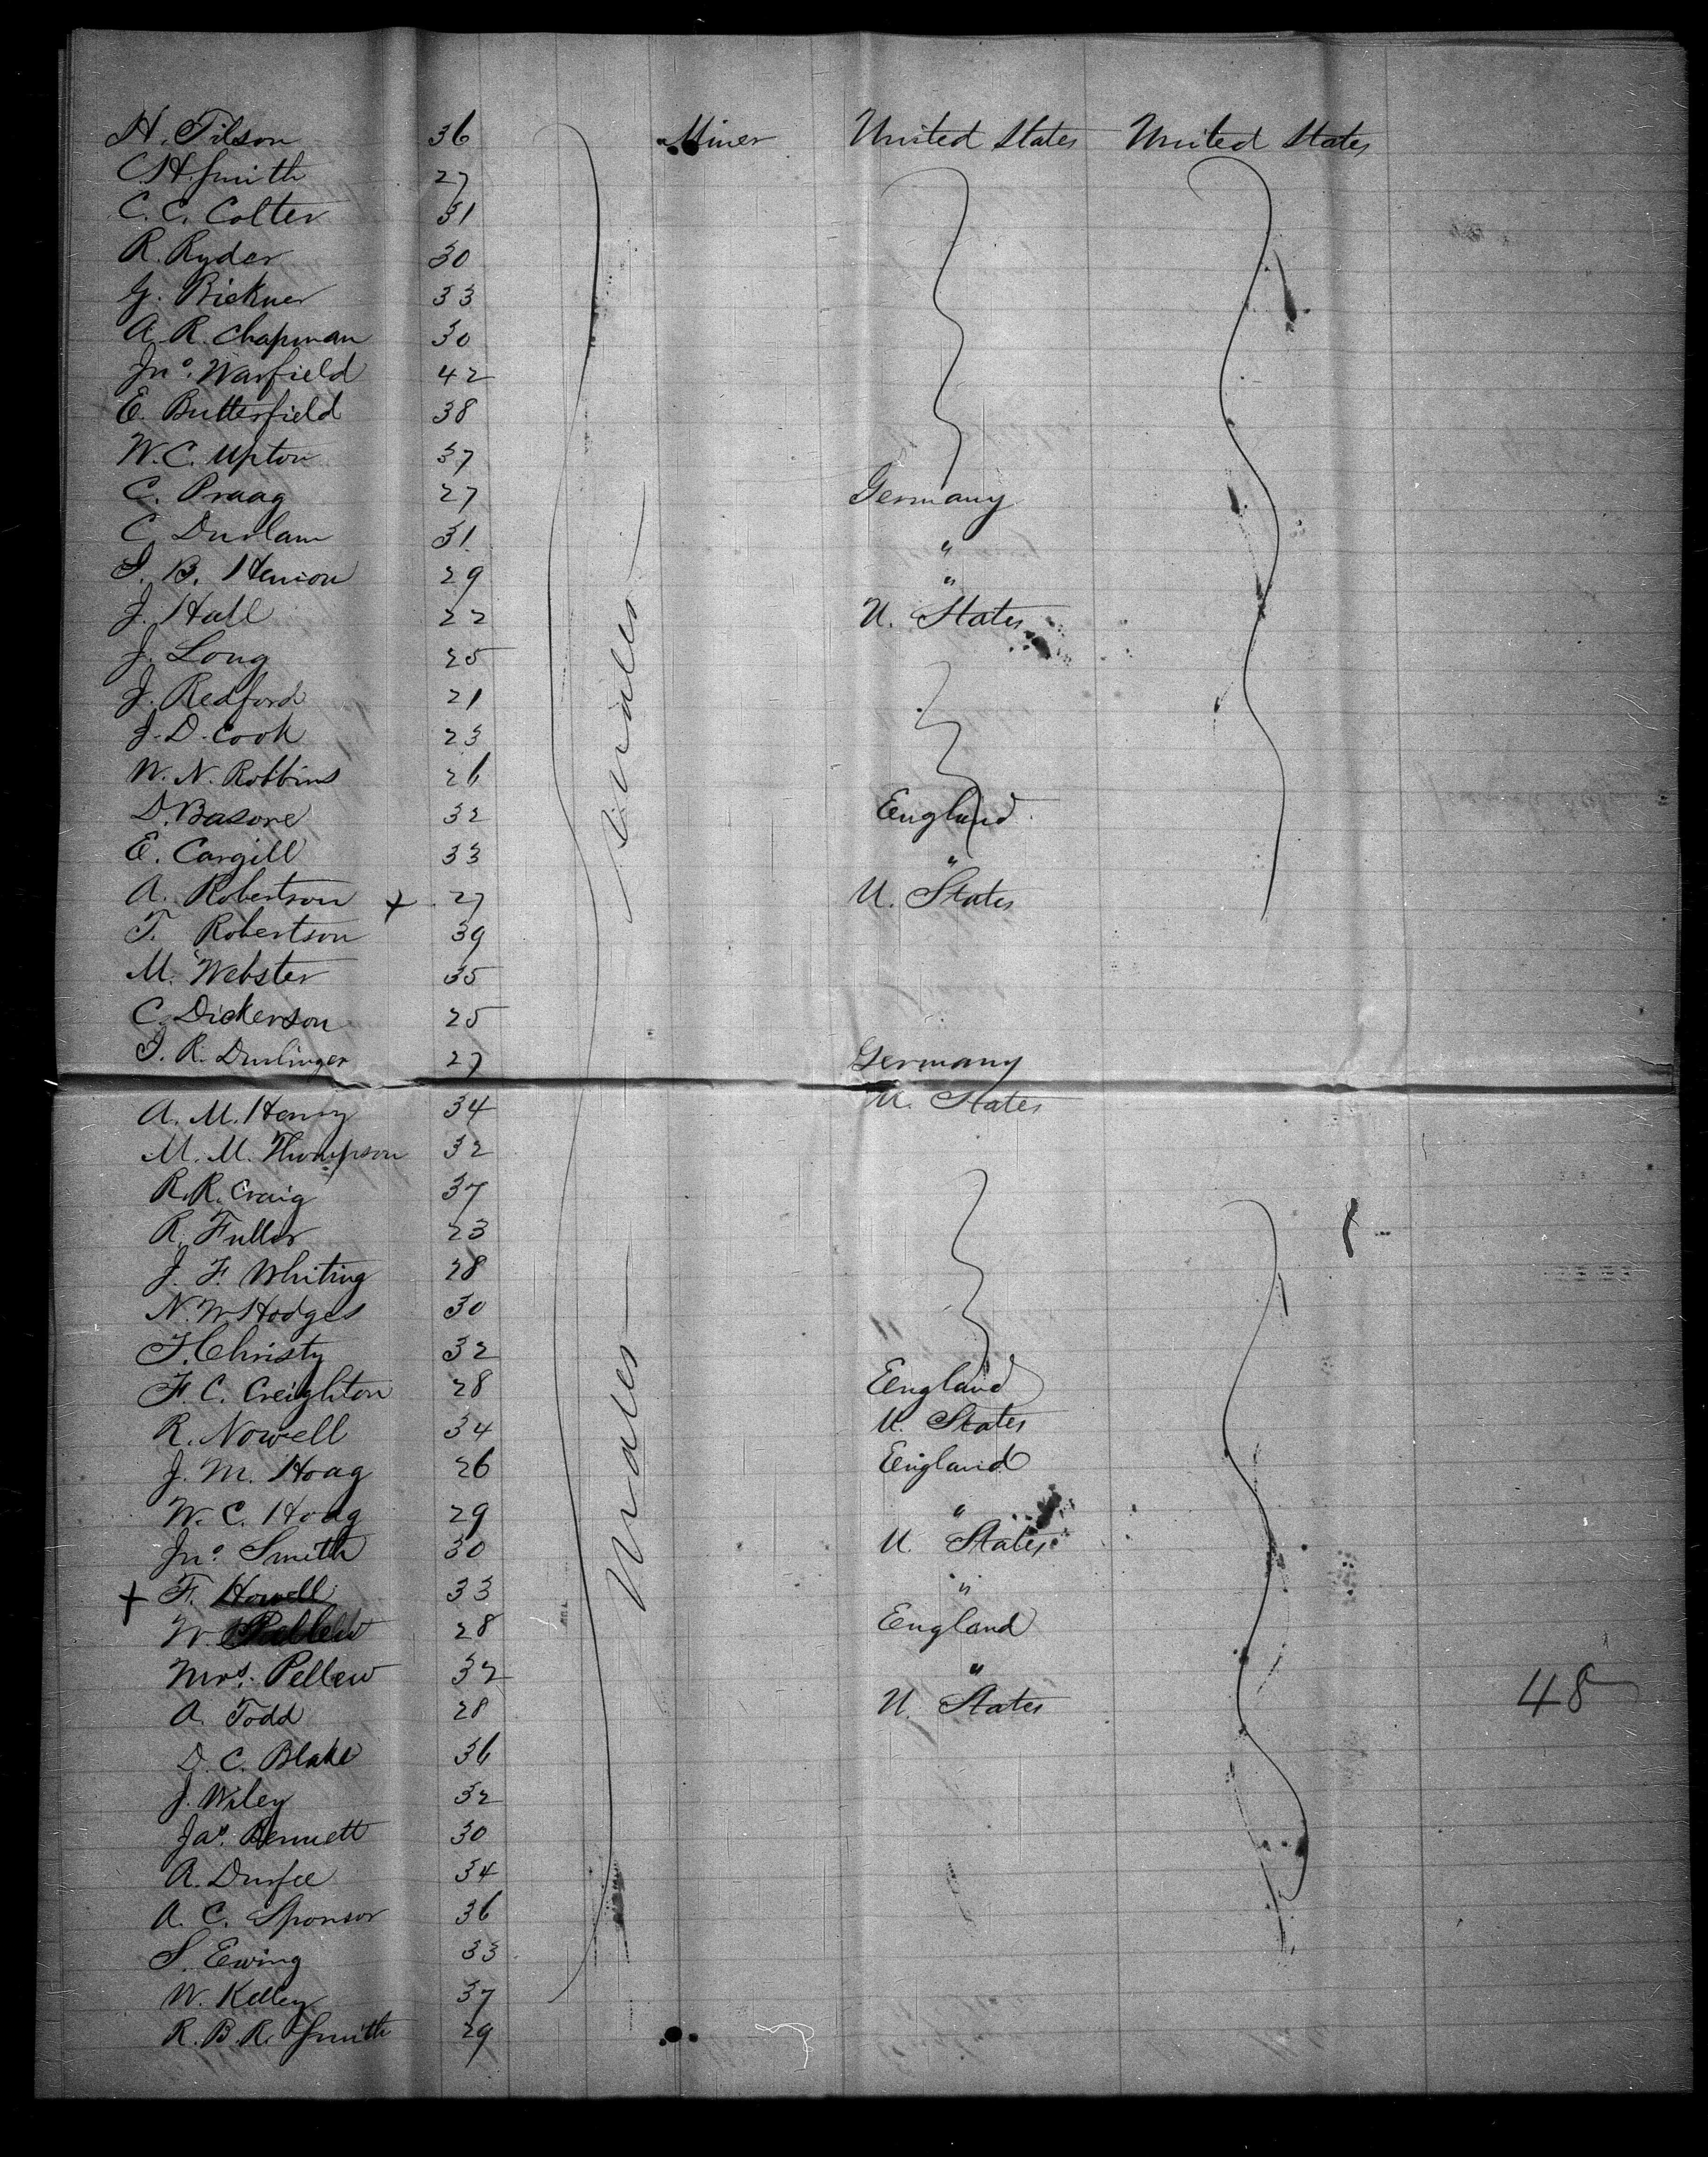 H. Tilson 36 Miner United States United States
C. H. Smith 27
C. C. Colter 31
R. Ryder 30
G. Rickner 33
A. R. Chapman 30
Jno. Warfield 42
E. Butterfield 38
W. C. Upton 37
C. Praag 27 Germany
C. Durlam 31 "
I. B. Henion 29 "
J. Hall 22 U. States
J. Long 25
J. Redford 21
J. D. Cook 23
W. N. Robbins 26
D. Basore 32 England
E. Cargill 33 "
A. Robertson + 27 U. States
T. Robertson 39
M. Webster 35
C. Dickerson 25
I. R. Durlinger 27 Germany
A. M. Henry 34 U. States
M. M. Thompson 32
R. R. Craig 37
R. Fuller 23
J. F. Whiting 28
N. W. Hodges 30
F. Christy 32
F. C. Creighton 28 England
R. Nowell 34 U. States
J. M. Hoag 26 England
W. C. Hoag 29 "
Jno. Smith 30 U. States
+ F. Howell 33 "
W. Pellew 28 England
Mrs. Pellew 32 "
A. Todd 28 U. States 48
D. C. Blake 36
J. Wiley 32
Jas. Bennett 30
A. Durfee 34
A. C. Sponsor 36
S. Ewing 33
W. Kelley 37
R. B. R. Smith 29
Males
Males